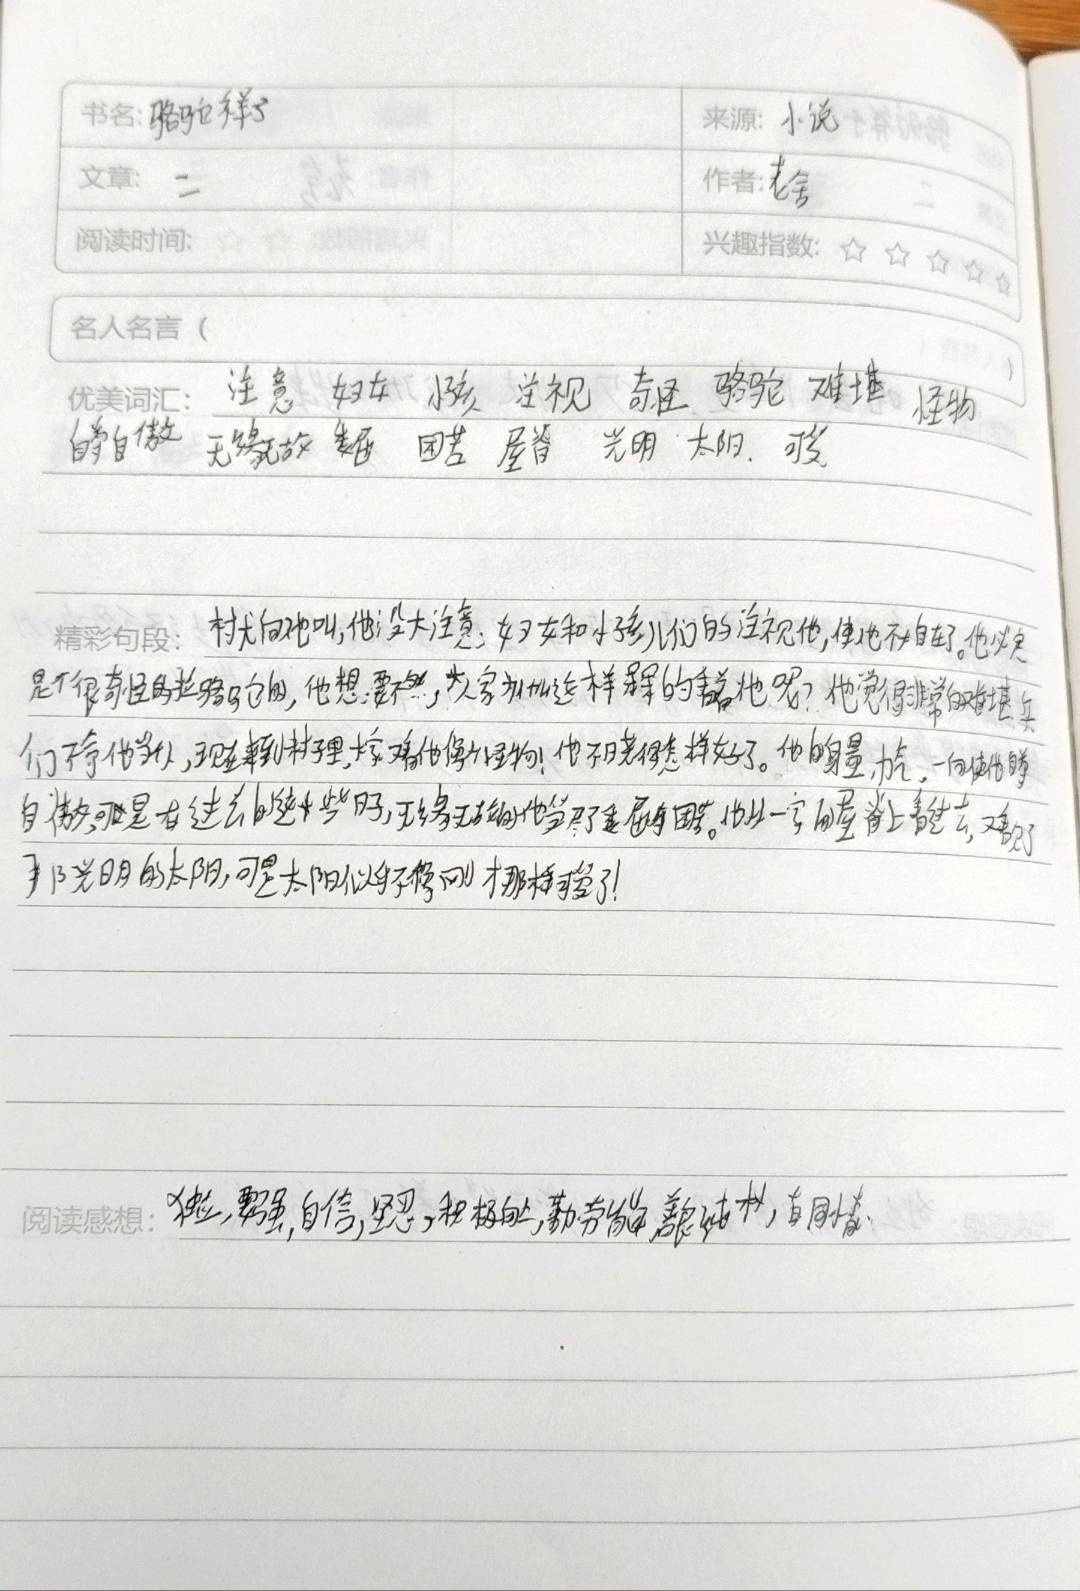 书名: 骆驼祥子 来源: 小说
文章: 二 作者: 老舍
阅读时间: 兴趣指数: ☆ ☆ ☆ ☆ ☆
名人名言 ( )
优美词汇: 注意 妇女 小孩 注视 奇怪 骆驼 难堪 怪物
自尊自傲 无缘无故 委屈 困苦 屋脊 光明 太阳. 可爱
精彩句段: 村犬向他叫,他没大注意;妇女和小孩儿们的注视他,使他不大自在了。他必定
是个很奇怪的拉骆驼的,他想:要不然,大家为什么这样呆呆的看着他呢?他觉得非常的难堪兵
们不拿他当人,现在来到村子里,大家看他像个怪物!他不晓得怎样好了。他的身量,力气,一向使他自尊
自傲,可是在过去的这些日子,无缘无故的他当尽了委屈与困苦。他从一家的屋脊上看过去,又看见了
那光明的太阳,可是太阳似乎不像刚才那样可爱了!
阅读感想: 独立,要强,自信,坚忍,积极向上,勤劳 善良 纯朴,有同情